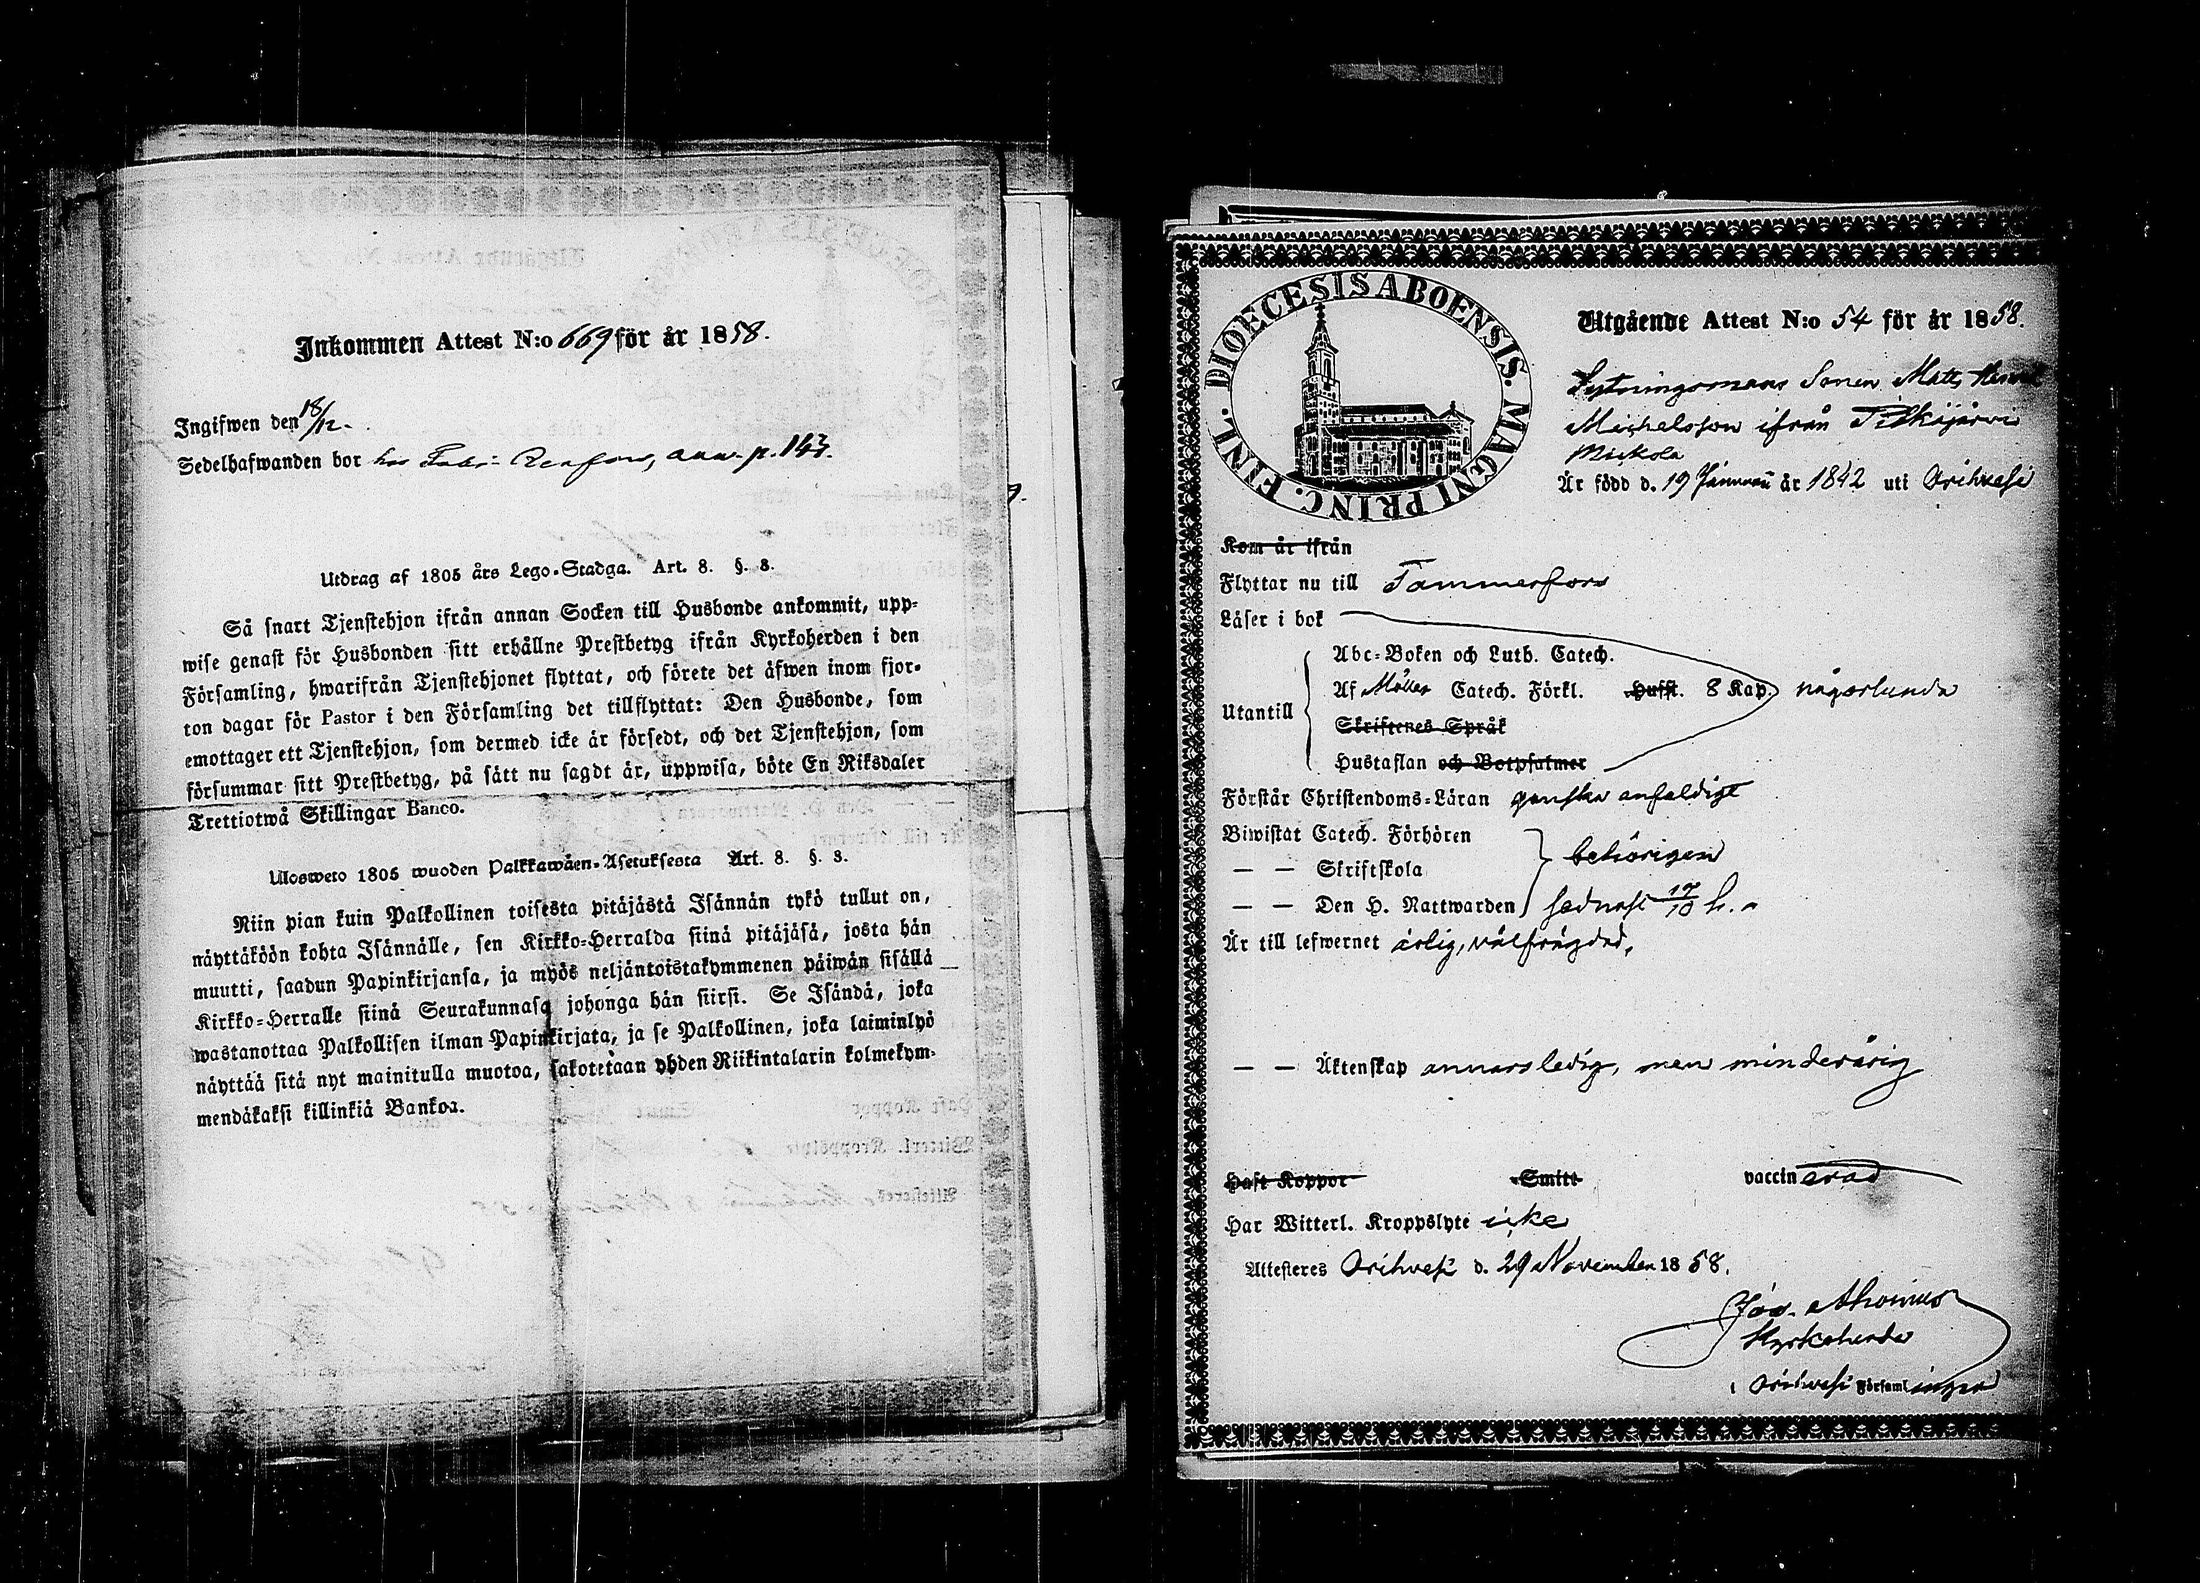 Inkommen Attest N:o 669 för år 1858.
Ingifwen den 18/12.
Sedelhafwanden bor hos ann. p. 143.
Utdrag af 1805 års Lego-Stadga. Art. 8. §. 8.
Så snart Tjenstehjon ifrån annan Socken till Husbonde ankommit, upp-
wise genast för Husbonden sitt erhållne Prestbetyg ifrån Kyrkoherden i den
Församling, hwarifrån Tjenstehjonet flyttat, och förete det äfwen inom fjor-
ton dagar för Pastor i den Församling det tillflyttat: Den Husbonde, som
emottager ett Tjenstehjon, som dermed icke är försedt, och det Tjenstehjon, som
försummar sitt Prestbetyg, på sätt nu sagdt är, uppwisa, böte En Riksdaler
Trettiotwå Skillingar Banco.
Ulosweto 1805 wuoden Palkkawäen-Asetuksesta Art. 8. §. 8.
Niin pian kuin Palkollinen toisesta pitäjästä Isännän tykö tullut on,
näyttäköön kohta Isännälle, sen Kirkko-Herralda siinä pitäjäsä, josta hän
muutti, saadun Papinkirjansa, ja myös neljäntoistakymmenen päiwän sisällä
Kirkko-Herralle siinä Seurakunnasa johonga hän siirsi. Se Isändä, joka
wastanottaa Palkollisen ilman Papinkirjata, ja se Palkollinen, joka laiminlyö
näyttää sitä nyt mainitulla muotoa, sakotetaan yhden Riikintalarin kolmekym-
mendäkaksi killinkiä Bankoa.
DIOECESIS ABOENSIS. MAGNI PRINC. FINL.
Utgående Attest N:o 54 för år 1858.
Sytningsmans Sonen Matts
Michelsson ifrån Pitkäjärvi
Mickola
Är född d. 19 Januari år 1842 uti Orihvesi
Kom år ifrån
Flyttar nu till Tammerfors
Läser i bok
Abc-Boken och Luth. Catech.
Af Möllers Catech. Förkl. Husst. 8 Kap. någorlunda
Utantill
Skriftenes Språk
Hustaflan och Botpsalmer
Förstår Christendoms-Läran ganska enfaldigt
Biwistat Catech. Förhören
— — Skriftskola behörigen
— — Den H. Nattwarden sednast 17/10 h. a
Är till lefwernet ärlig, välfrägdad,
— — Äktenskap annars ledig, men minderårig
Haft Koppor Smitt vaccinerad
Har Witterl. Kroppslyte icke
Attesteres Orihvesi d. 29 November 1858.
Kyrkoherde
i Orihvesi Församlingen